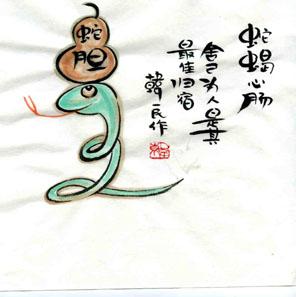 蛇蝎心肠
舍己为人是其
最佳归宿
韩民作
蛇胆